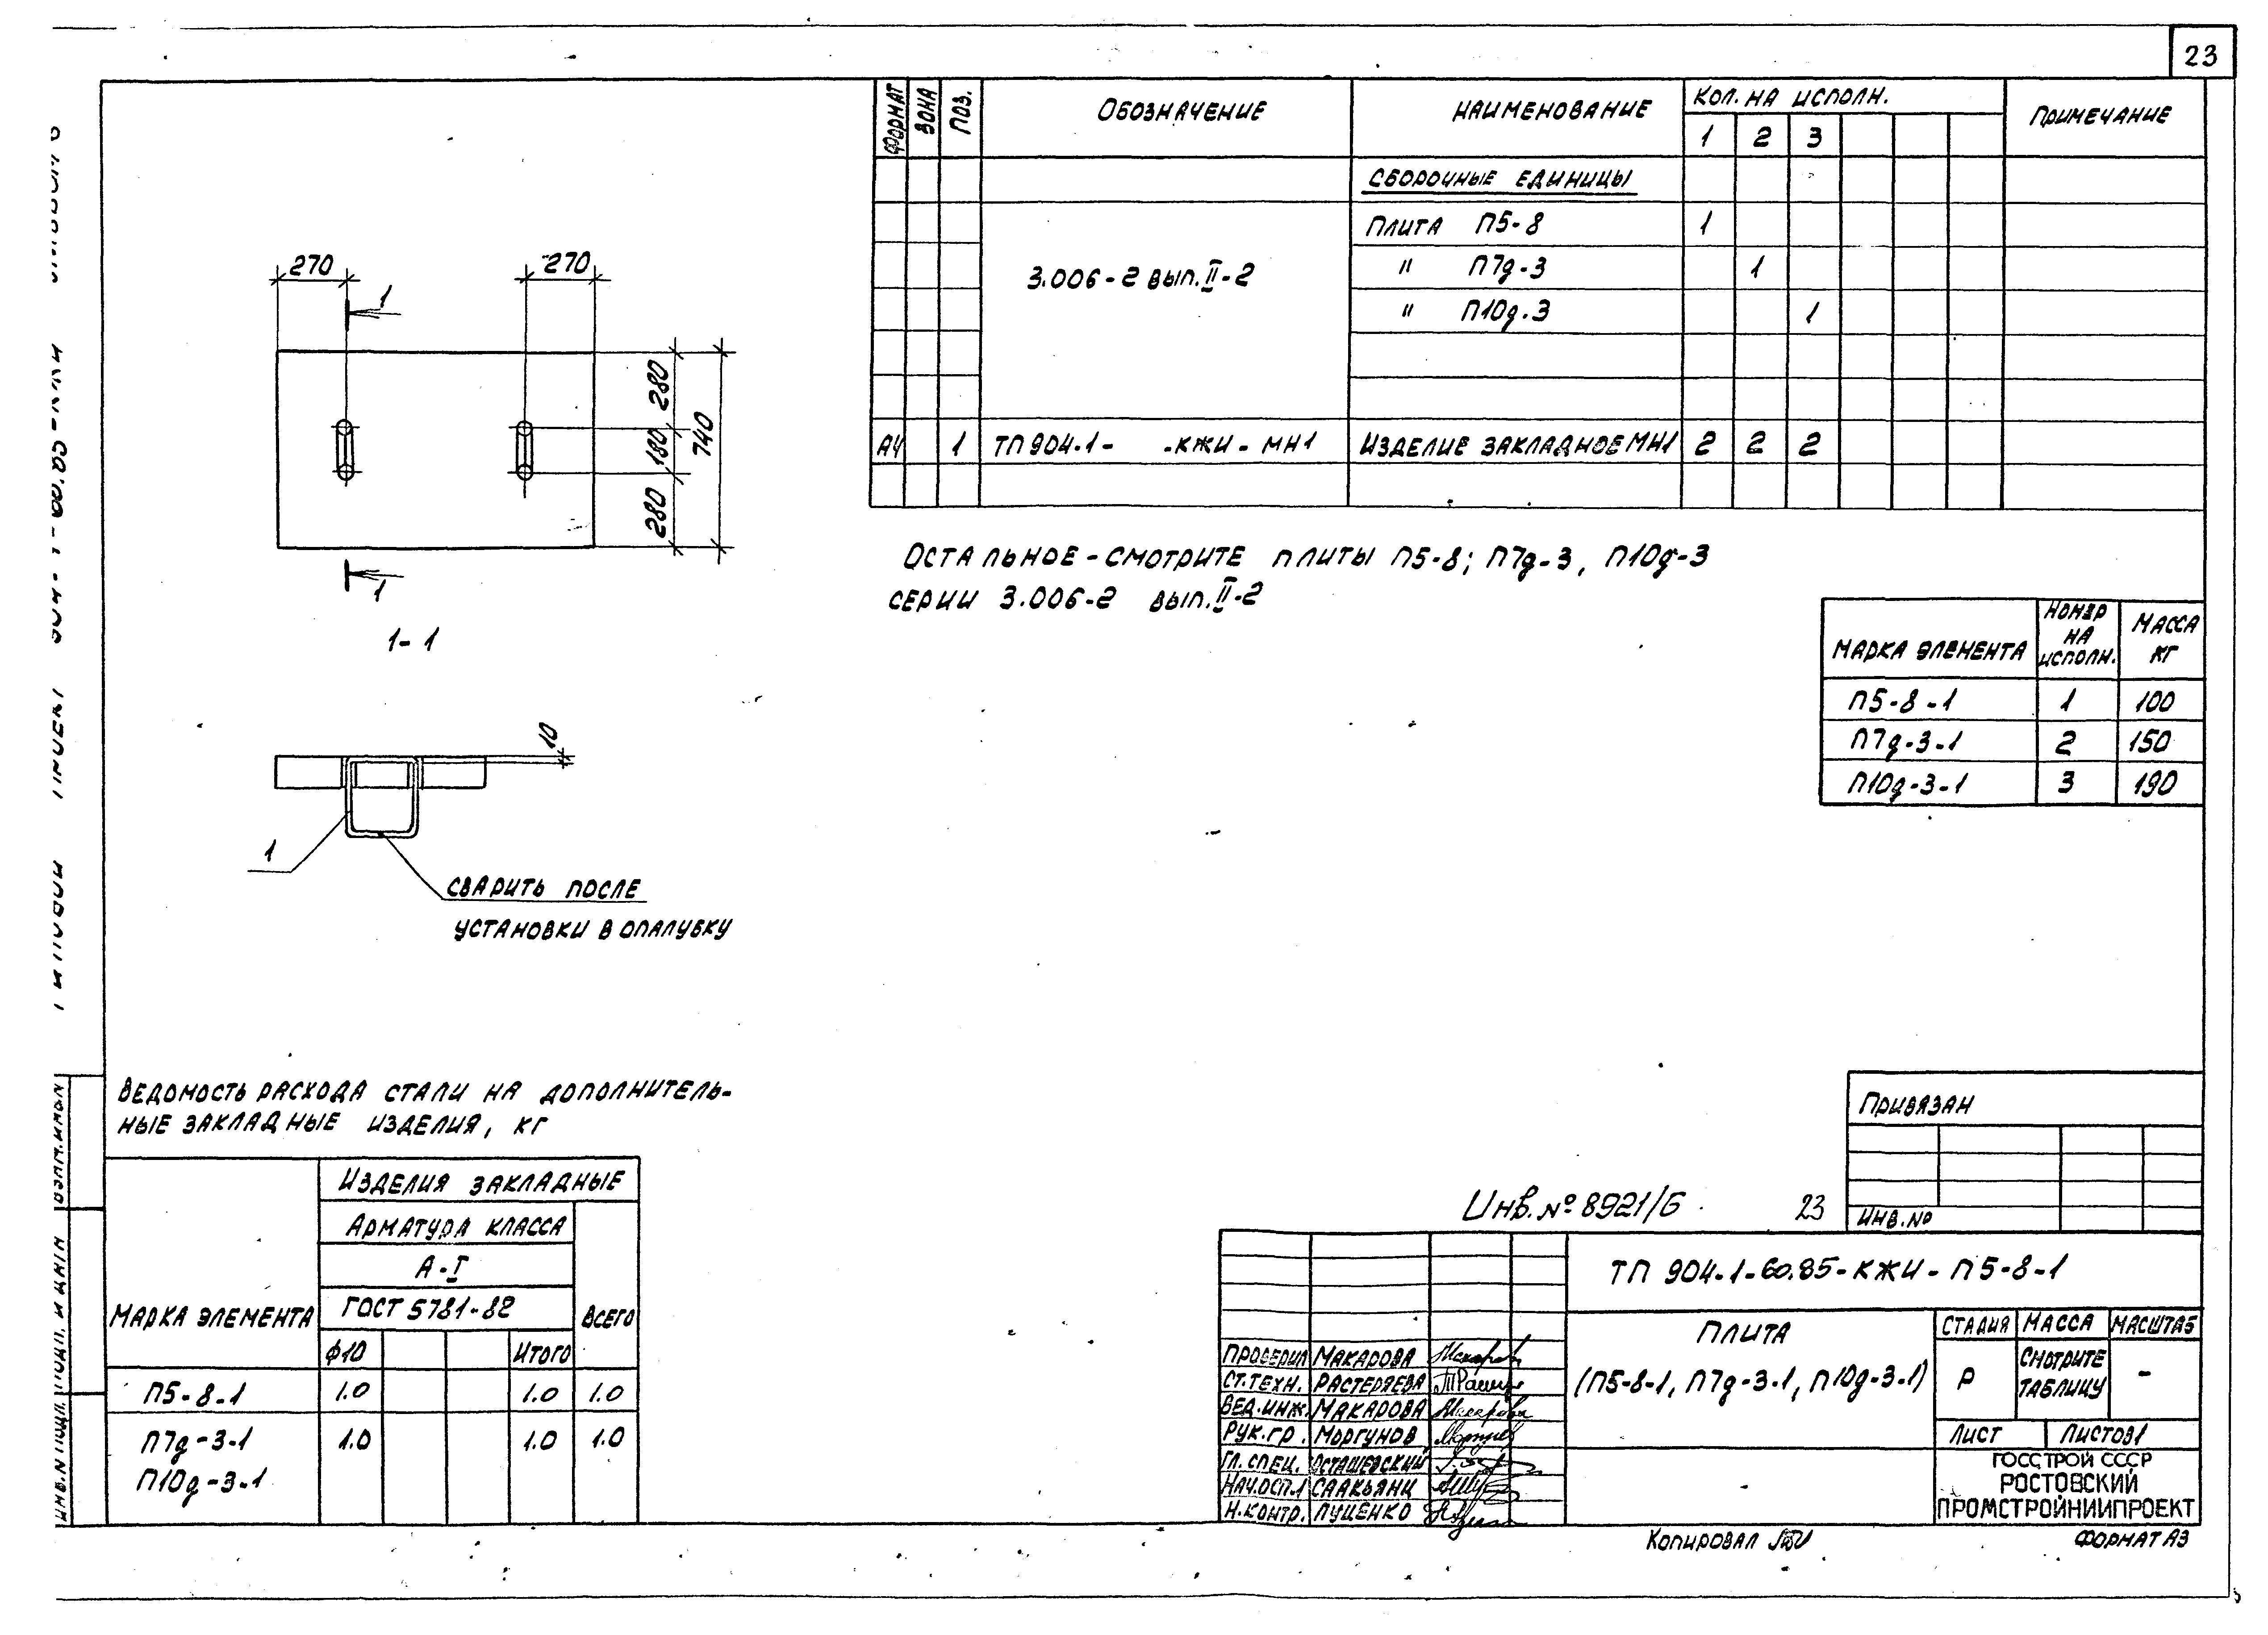 23
ФОРМАТ ЗОНА ПОЗ. ОБОЗНАЧЕНИЕ НАИМЕНОВАНИЕ КОЛ. НА ИСПОЛН. ПРИМЕЧАНИЕ
1 2 3
СБОРОЧНЫЕ ЕДИНИЦЫ
ПЛИТА П5-8 1
3.006-2 ВЫП. II-2 " П7д-3 1
" П10д-3 1
А4 1 ТП 904-1- -КЖИ-МН1 ИЗДЕЛИЕ ЗАКЛАДНОЕ МН1 2 2 2
270 270
1
280
180
280
740
1
1-1
10
1
СВАРИТЬ ПОСЛЕ
УСТАНОВКИ В ОПАЛУБКУ
ОСТАЛЬНОЕ - СМОТРИТЕ ПЛИТЫ П5-8; П7д-3, П10д-3
СЕРИИ 3.006-2 ВЫП. II-2
МАРКА ЭЛЕМЕНТА НОМЕР НА ИСПОЛН. МАССА КГ
П5-8-1 1 100
П7д-3-1 2 150
П10д-3-1 3 190
ВЕДОМОСТЬ РАСХОДА СТАЛИ НА ДОПОЛНИТЕЛЬ-
НЫЕ ЗАКЛАДНЫЕ ИЗДЕЛИЯ, КГ
МАРКА ЭЛЕМЕНТА ИЗДЕЛИЯ ЗАКЛАДНЫЕ
АРМАТУРА КЛАССА
А-I
ГОСТ 5781-82 ВСЕГО
ф10 ИТОГО
П5-8-1 1.0 1.0 1.0
П7д-3-1 1.0 1.0 1.0
П10д-3-1
ПРИВЯЗАН
ИНВ. №
Инв. № 8921/6 23
ТП 904-1-60.85-КЖИ-П5-8-1
ПЛИТА
(П5-8-1, П7д-3-1, П10д-3-1)
СТАДИЯ МАССА МАСШТАБ
Р СМОТРИТЕ ТАБЛИЦУ -
ЛИСТ ЛИСТОВ 1
ГОССТРОЙ СССР
РОСТОВСКИЙ
ПРОМСТРОЙНИИПРОЕКТ
ПРОВЕРИЛ МАКАРОВА
СТ.ТЕХН. РАСТЕРЯЕВА
ВЕД.ИНЖ. МАКАРОВА
РУК.ГР. МОРГУНОВ
ГЛ. СПЕЦ. ОСТАШЕВСКИЙ
НАЧ.ОСП.1 СААКЬЯНЦ
Н.КОНТР. ЛУЦЕНКО
КОПИРОВАЛ
ФОРМАТ А3
ИНВ.N ПОДЛ. ПОДП. И ДАТА ВЗАМ.ИНВ.N